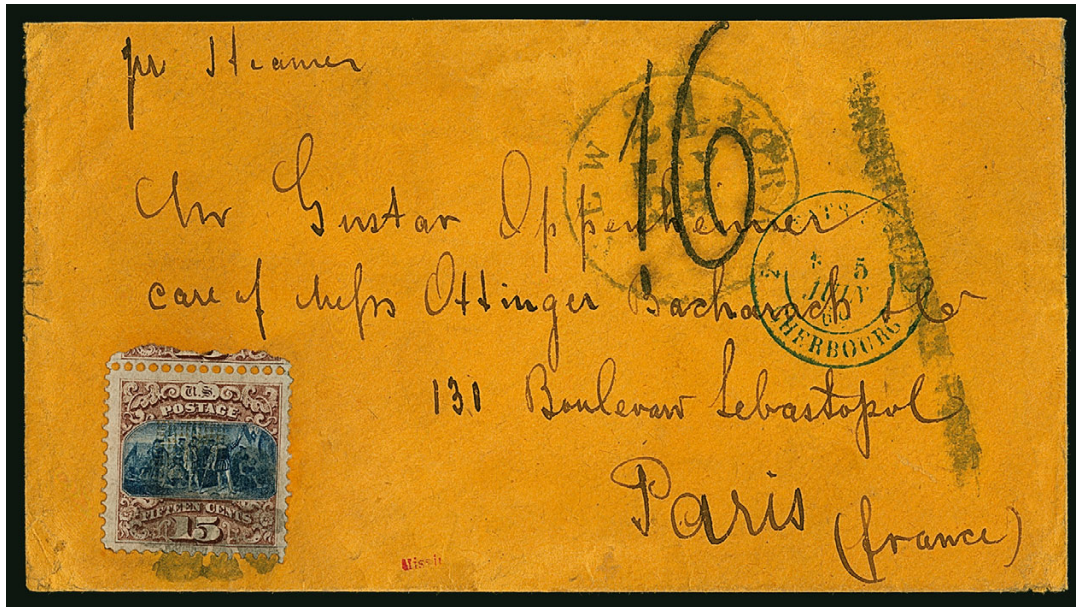 pr Steamer
16
NEW YORK
5
JUIY
69
CHERBOURG
Mr Gustav Oppenheimer
care of Mess Ottinger Bacharach & Co
131 Boulevar Sebastopol
Paris
(france)
U.S.
POSTAGE
FIFTEEN CENTS
15